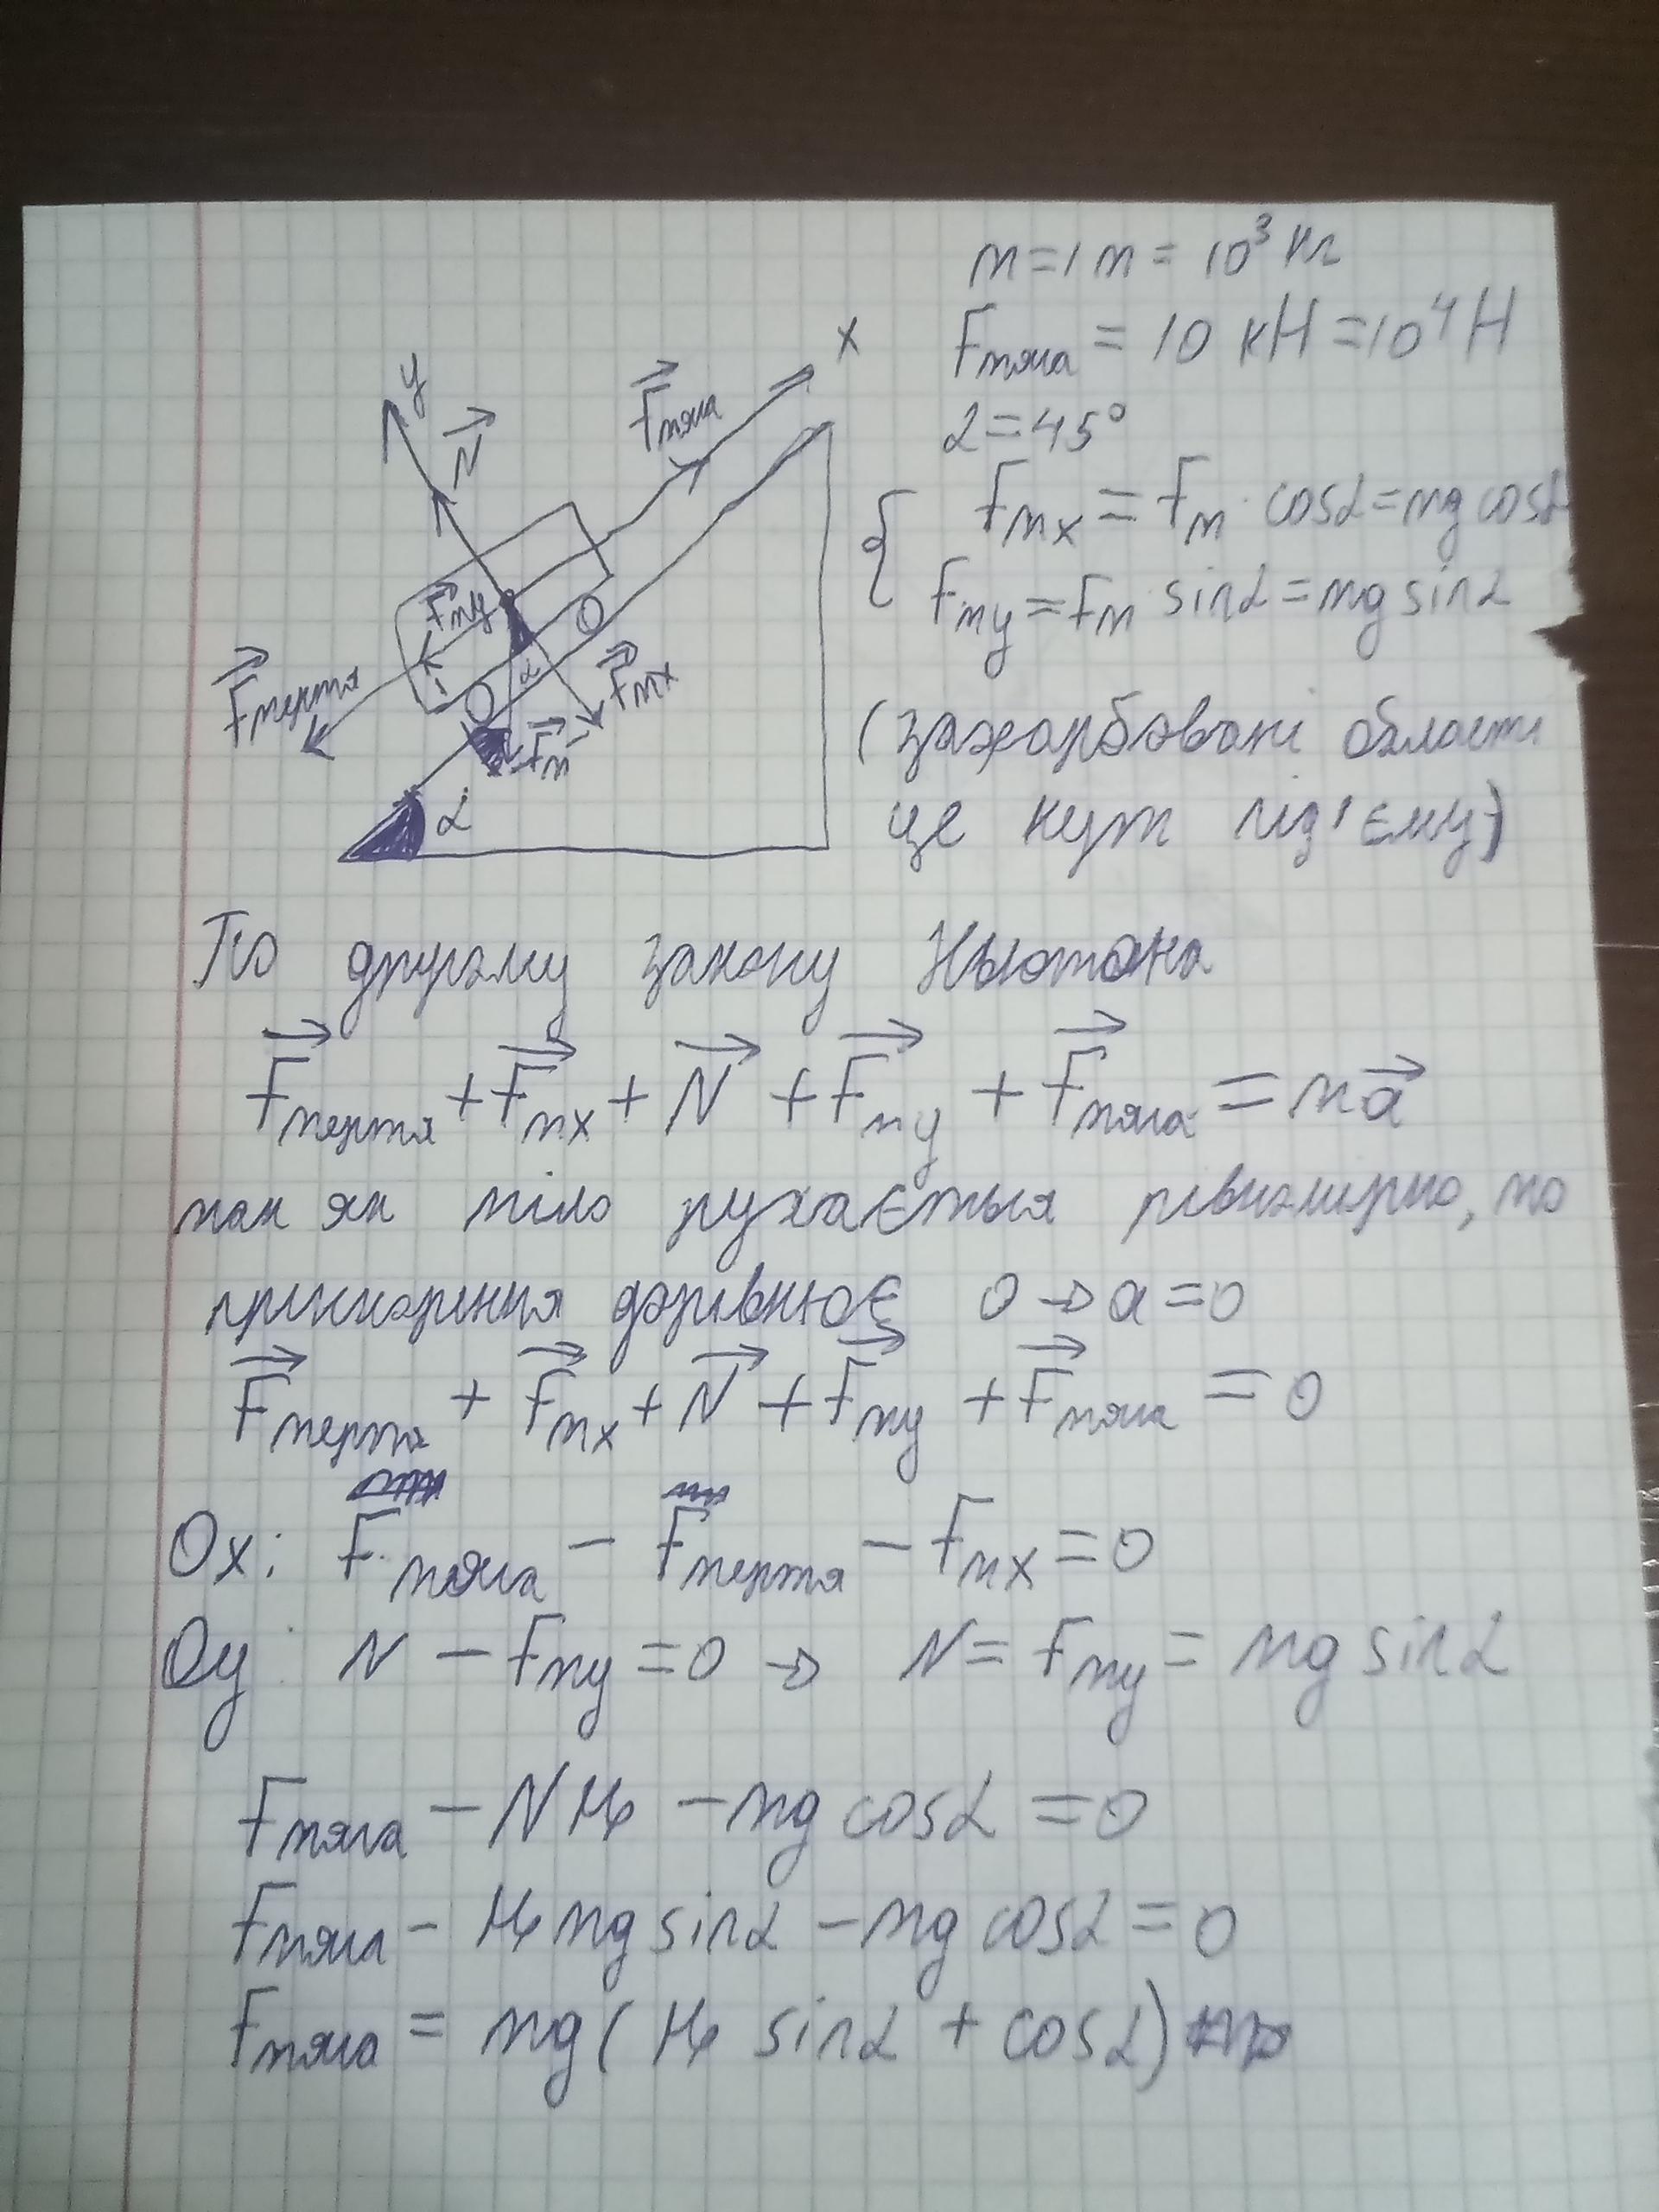 m=1т=10³ кг
Fтяга = 10 кН =10⁴ Н
α=45°
Fтx = Fт · cosα=mg cosα
Fтy=Fт sinα=mg sinα
(зафарбовані області
це кут під'єму)
y
N
Fтяга
x
Fтy
Fтертя
α
Fтx
Fт
α
По другому закону Ньютона
Fтертя + Fтx + N + Fтy + Fтяга = ma
так як тіло рухається рівномірно, то
прискорення дорівнює 0 → a=0
Fтертя + Fтx + N + Fтy + Fтяга = 0
Ox: Fтяга − Fтертя − Fтx = 0
Oy: N − Fтy = 0 → N = Fтy = mg sinα
Fтяга − Nμ − mg cosα = 0
Fтяга − μ mg sinα − mg cosα = 0
Fтяга = mg(μ sinα + cosα)